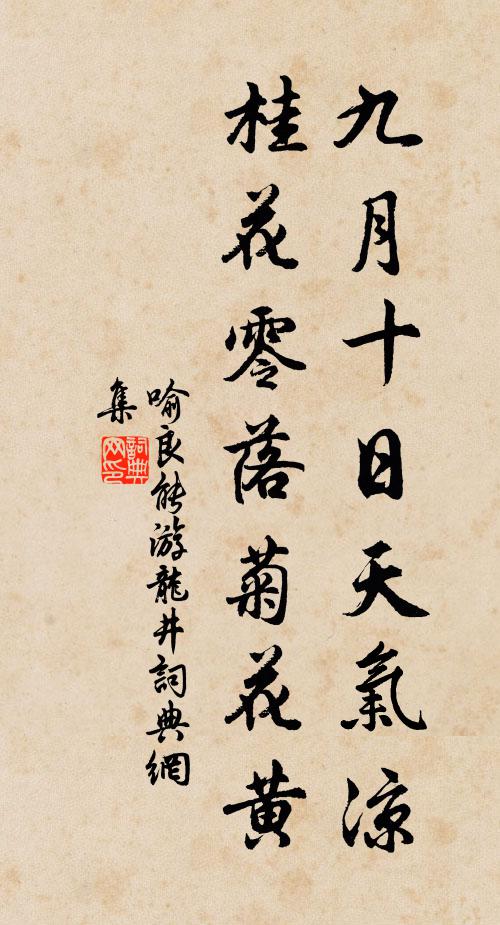 九月十日天氣涼
桂花零落菊花黄
喻良能游龍井詞典網
集
詞典
网印